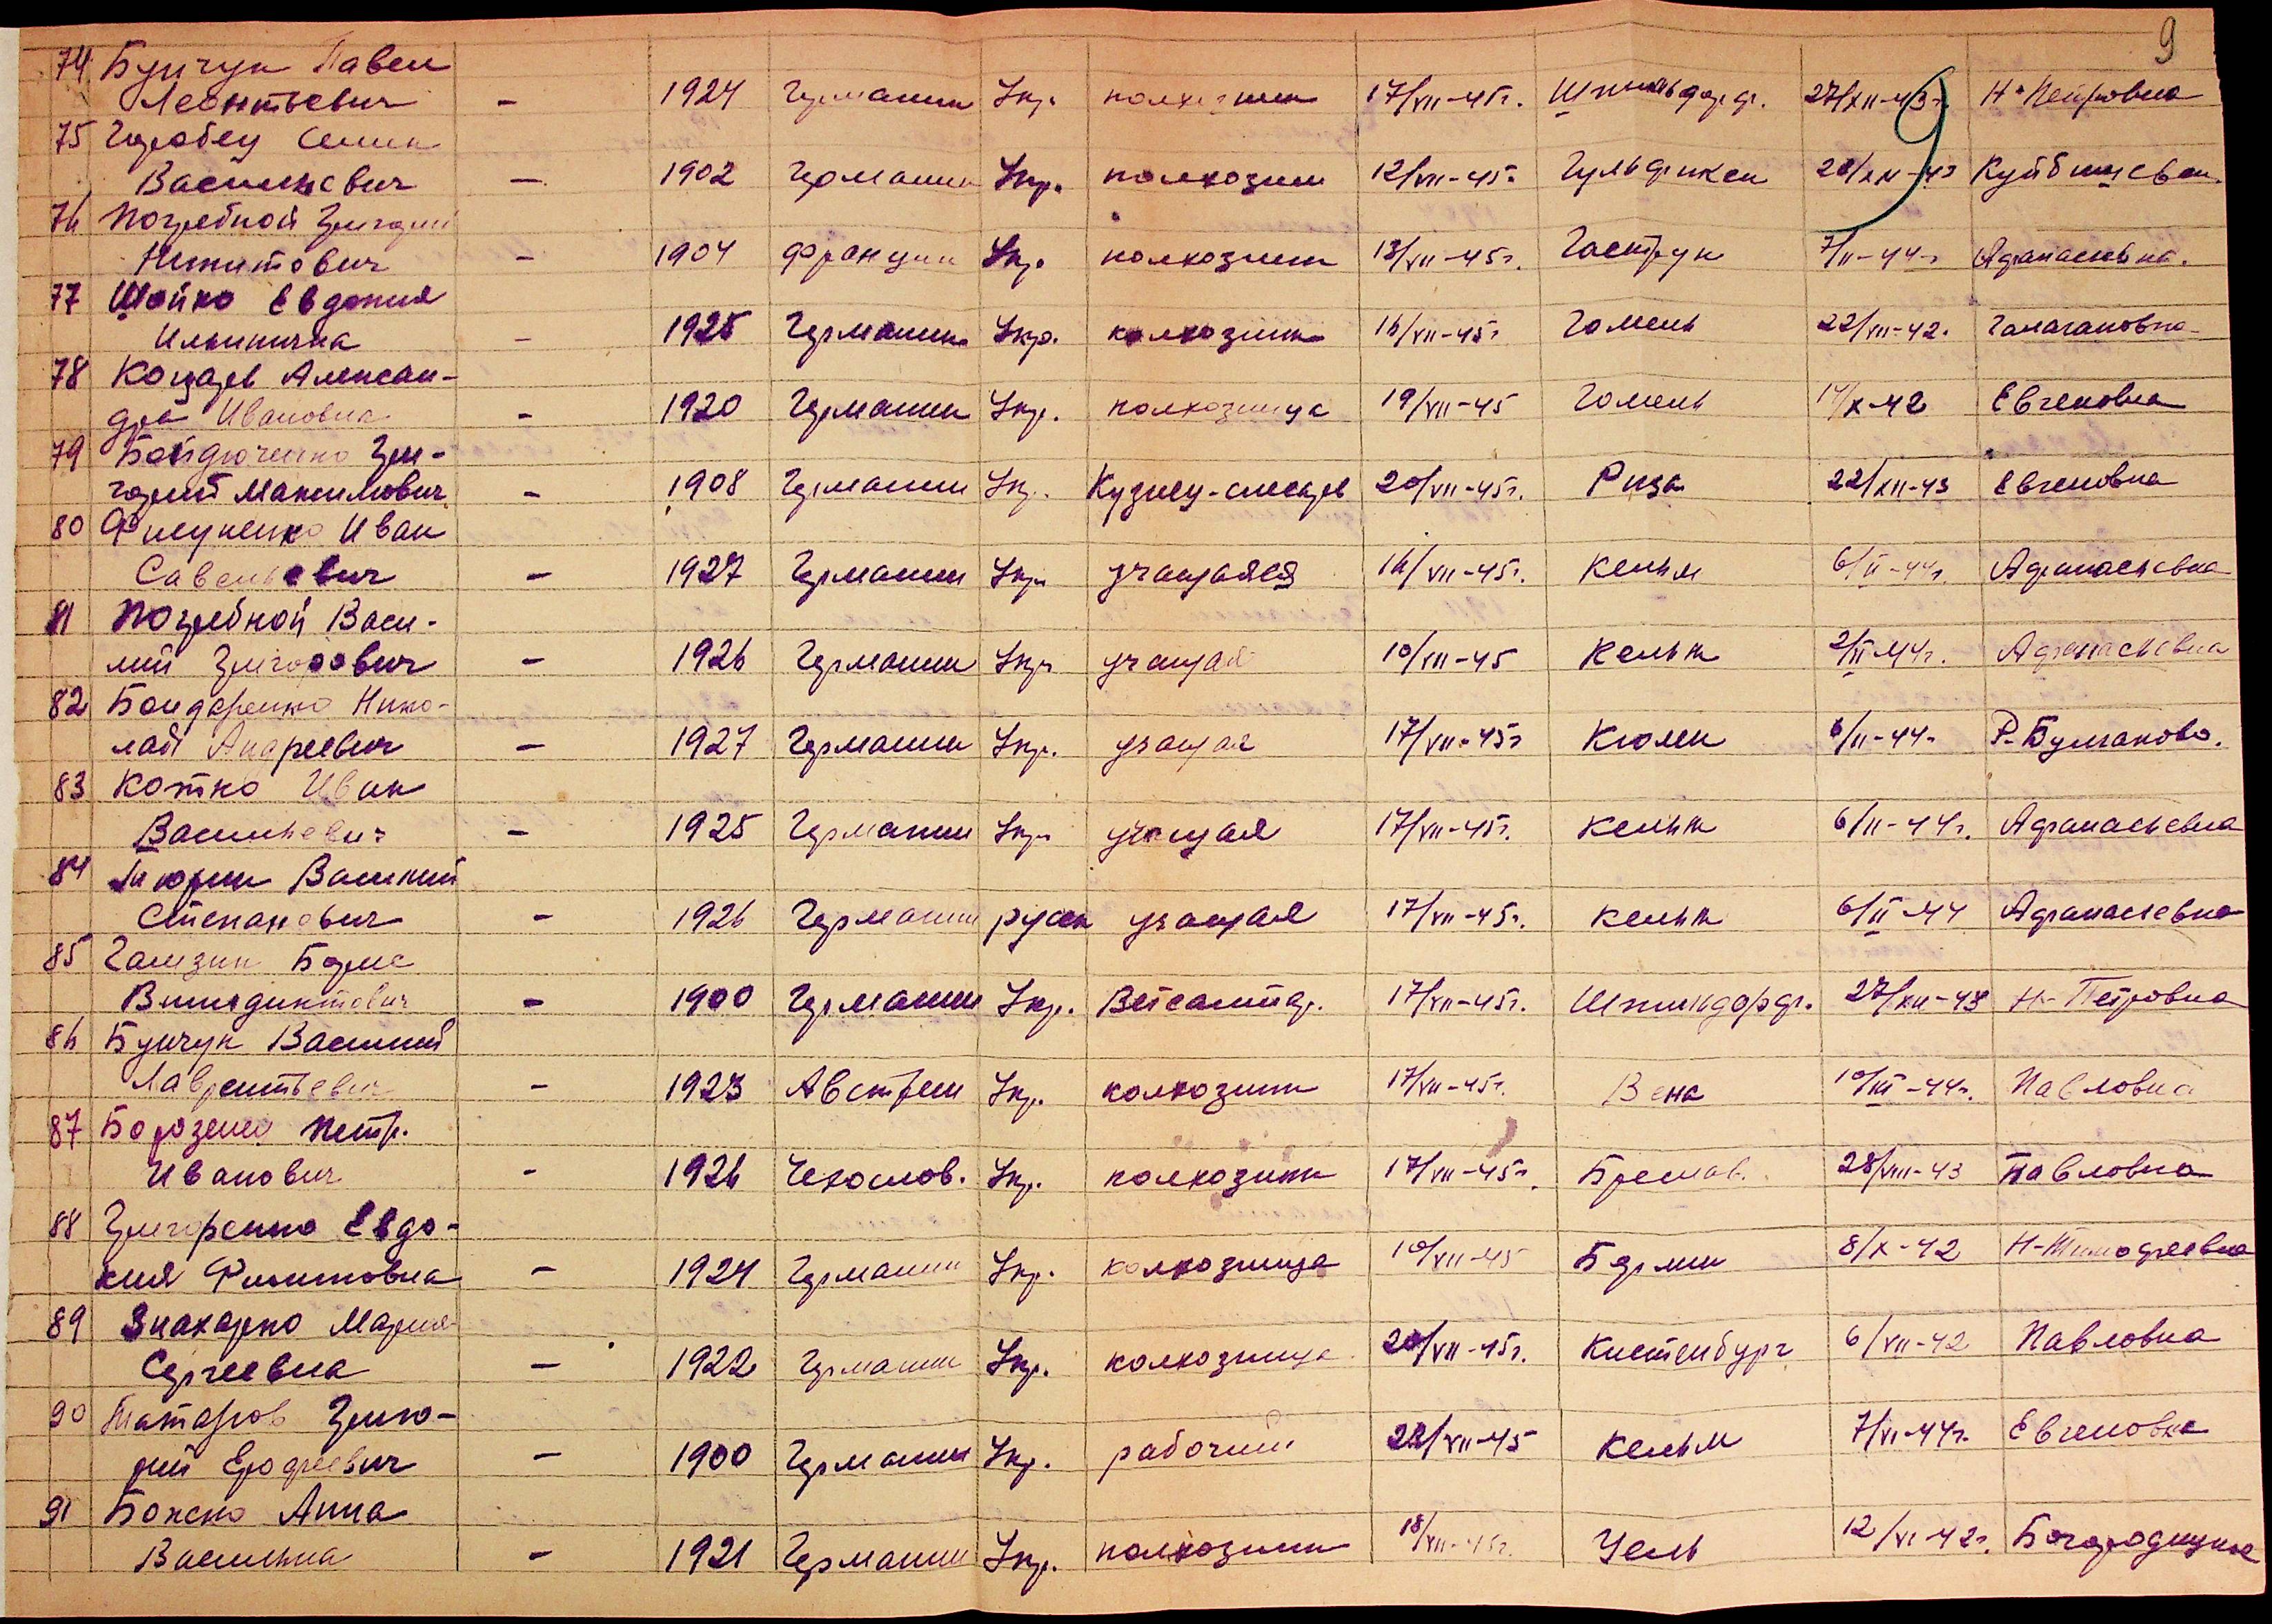 9
74 Бунчук Павел
Леонтьевич - 1924 Германии Укр. колхозник 17/VII-45г. Шпильдорф. 27/XII-43г. Н-Петровка
75 Горобец Семен
Васильевич - 1902 Германии Укр. колхозник 12/VII-45г. Гульфикен 20/XII-43 Куйбышевка.
76 Погребной Григорий
Никитович - 1904 Франции Укр. колхозник 13/VII-45г. Гаструк 7/II-44г. Афанасьевка.
77 Шойко Евдокия
Ильинична - 1925 Германии Укр. колхозник 16/VII-45г. Гомень 22/VII-42. Галагановка
78 Косарев Алексан-
дра Ивановна - 1920 Германии Укр. колхозница 19/VII-45 Гомень 14/X-42 Евгеновка
79 Байдюченко Гри-
горий Максимович - 1908 Германии Укр. Кузнец-слесарь 20/VII-45г. Риза 22/XII-43 Евгеновка
80 Фисуненко Иван
Савельевич - 1927 Германии Укр. учащаяся 16/VII-45г. Кельм 6/II-44г. Афанасьевка
81 Погребной Васи-
лий Григорович - 1926 Германии Укр. учащая 10/VII-45 Кельн 2/II-44г. Афанасьевка
82 Бондаренко Нико-
лай Андреевич - 1927 Германии Укр. учащая 17/VII-45г. Кюлен 6/II-44г. Р-Булгаково.
83 Котко Иван
Васильевич - 1925 Германии Укр. учащая 17/VII-45г. Кельн 6/II-44г. Афанасьевка
84 Тюрин Василий
Степанович - 1926 Германии русск учащая 17/VII-45г. Кельн 6/II-44 Афанасьевка
85 Галызин Борис
Винидиктович - 1900 Германии Укр. Ветсанитар. 17/VII-45г. Шпильдорф. 27/XII-43 Н-Петровка
86 Бунчук Василий
Лаврентьевич - 1923 Австрии Укр. колхозник 17/VII-45г. Вена 10/III-44г. Павловка
87 Борозенец Петр.
Иванович - 1926 Чехослов. Укр. колхозник 17/VII-45г. Бреслав. 28/VIII-43 Павловка
88 Григоренко Евдо-
кия Филитовна - 1924 Германии Укр. колхозница 10/VII-45 Берлин 8/X-42 Н-Тимофеевка
89 Знахарко Мария
Сергеевна - 1922 Германии Укр. колхозница 20/VII-45г. Кистенбург 6/VII-42 Павловка
90 Татаров Григо-
рий Ерофеевич - 1900 Германии Укр. рабочий 22/VII-45 Кельм 7/VI-44г. Евгеновка
91 Божко Анна
Васильна - 1921 Германии Укр. колхозник 18/VII-45г. Цель 12/VI-42г. Богородицкое